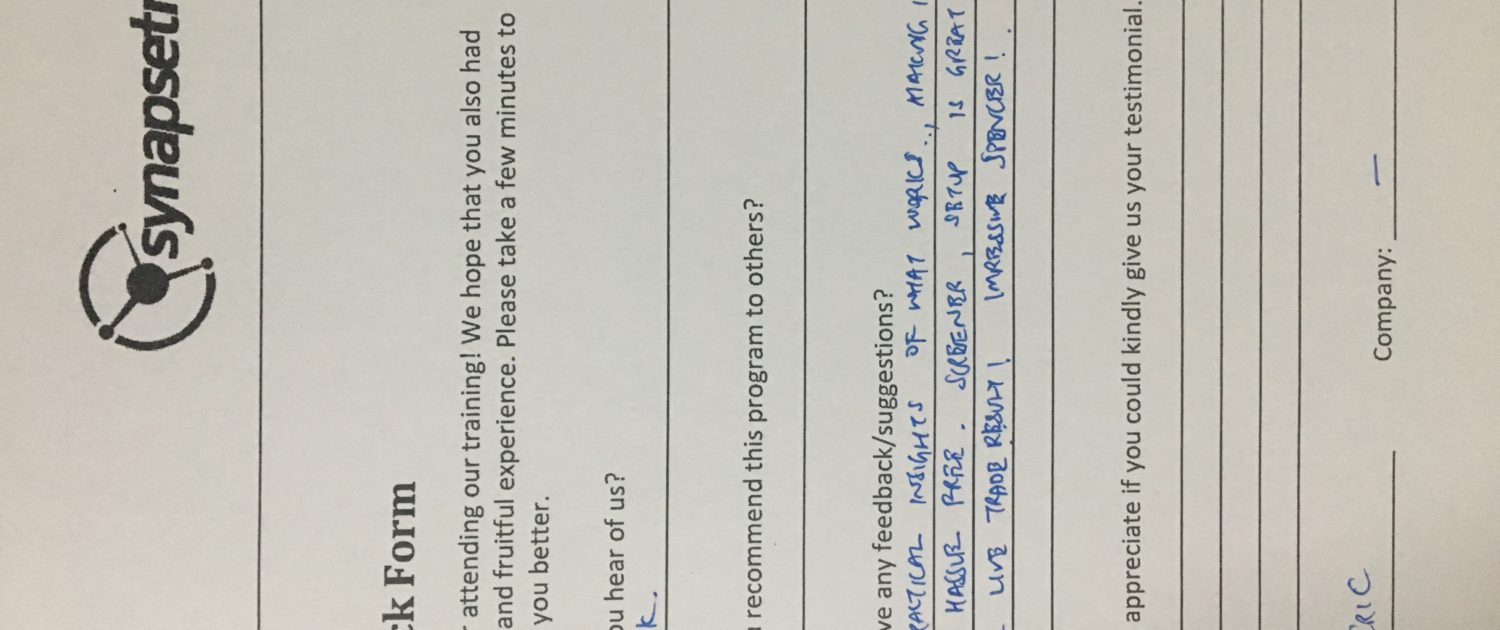 synapsetr
ck Form
attending our training! We hope that you also had
and fruitful experience. Please take a few minutes to
you better.
ou hear of us?
K.
recommend this program to others?
ve any feedback/suggestions?
RACTICAL INSIGHTS OF WHAT WORKS.., MAKING
HASSLE FREE. SCREENER, SETUP IS GREAT
LIVE TRADE RESULT! IMRESSIVE SPENCER!.
appreciate if you could kindly give us your testimonial.
RIC Company: —